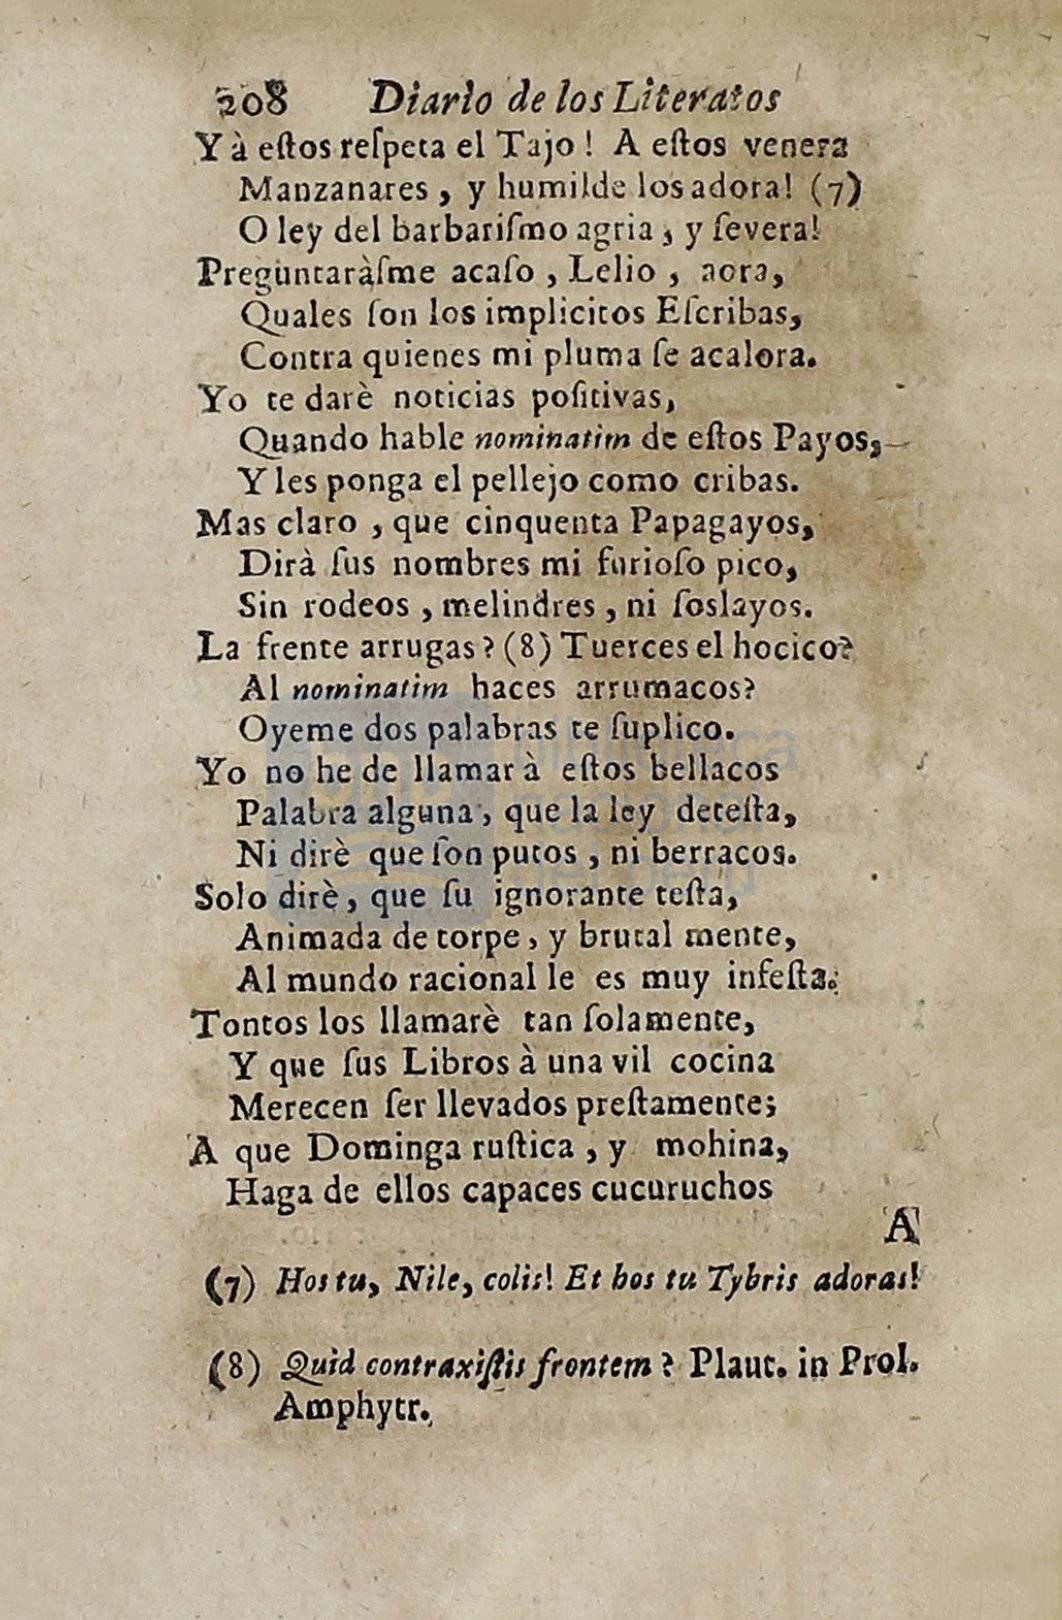 208 Diario de los Literatos
Y à eſtos reſpeta el Tajo! A eſtos venera
Manzanares, y humilde los adora! (7)
O ley del barbariſmo agria, y ſevera!
Preguntaràſme acaſo, Lelio, aora,
Quales ſon los implicitos Eſcribas,
Contra quienes mi pluma ſe acalora.
Yo te darè noticias poſitivas,
Quando hable nominatim de eſtos Payos,
Y les ponga el pellejo como cribas.
Mas claro, que cinquenta Papagayos,
Dirà ſus nombres mi furioſo pico,
Sin rodeos, melindres, ni ſoslayos.
La frente arrugas? (8) Tuerces el hocico?
Al nominatim haces arrumacos?
Oyeme dos palabras te ſuplico.
Yo no he de llamar à eſtos bellacos
Palabra alguna, que la ley deteſta,
Ni dirè que ſon putos, ni berracos.
Solo dirè, que ſu ignorante teſta,
Animada de torpe, y brutal mente,
Al mundo racional le es muy infeſta.
Tontos los llamarè tan ſolamente,
Y que ſus Libros à una vil cocina
Merecen ſer llevados preſtamente;
A que Dominga ruſtica, y mohina,
Haga de ellos capaces cucuruchos
A
(7) Hos tu, Nile, colis! Et hos tu Tybris adoras!
(8) Quid contraxiſtis frontem? Plaut. in Prol.
Amphytr.